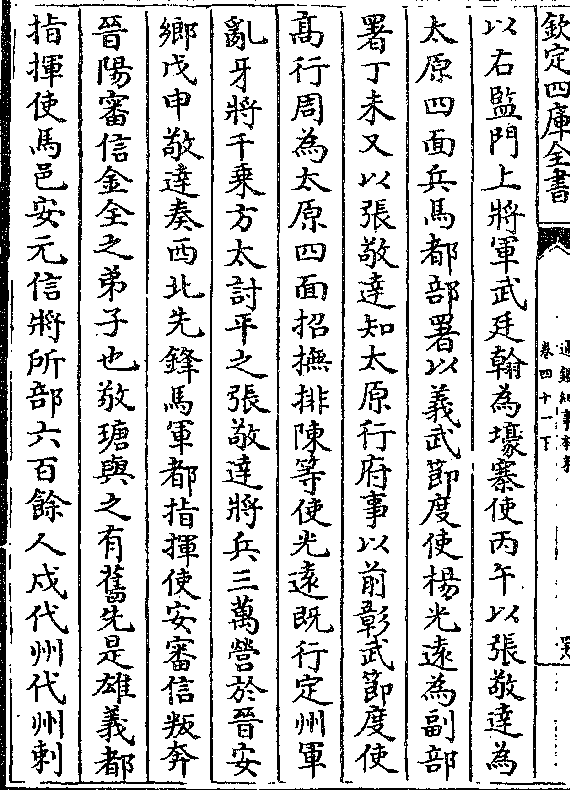 欽定四庫全書
通鑑紀事本末
卷四十一下
以右監門上將軍武廷翰為壕寨使丙午以張敬達為
太原四面兵馬都部署以義武節度使楊光遠為副部
署丁未又以張敬達知太原行府事以前彰武節度使
髙行周為太原四面招撫排陳等使光遠既行定州軍
亂牙將千乗方太討平之張敬達將兵三萬營於晉安
鄉戊申敬達奏西北先鋒馬軍都指揮使安審信叛奔
晉陽審信金全之弟子也敬瑭與之有舊先是雄義都
指揮使馬邑安元信將所部六百餘人戍代州代州刺